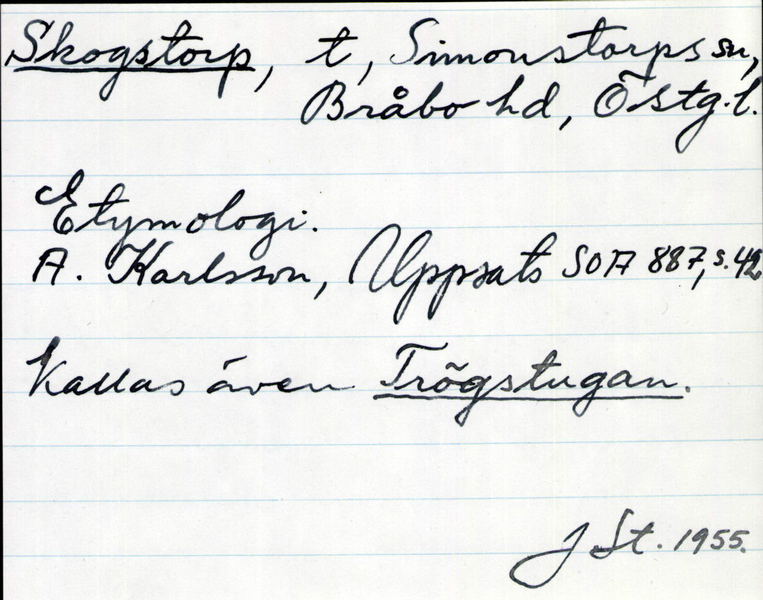 Skogstorp, t, Simonstorps sn,
Bråbo hd, Östg.l.
Etymologi.
A. Karlsson, Uppsats SOA 887, s. 42
Kallas även Trögstugan.
J St. 1955.